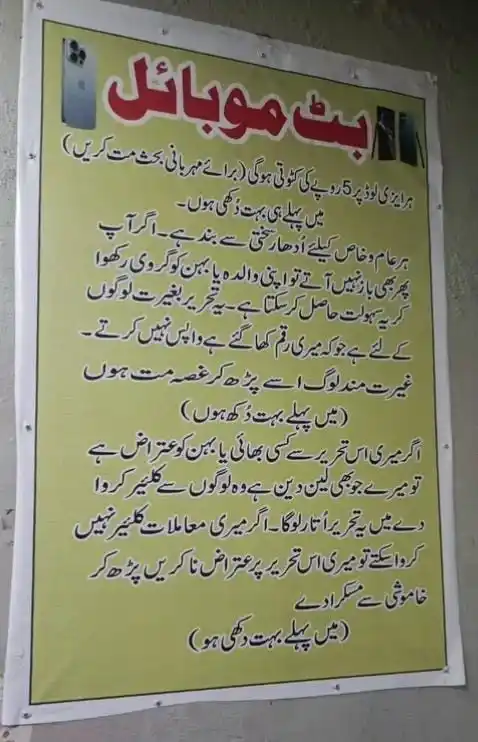 بٹ موبائل
ہر ایزی لوڈ پر 5 روپے کی کٹوتی ہوگی (برائے مہربانی بحث مت کریں)
میں پہلے ہی بہت دُکھی ہوں۔
ہر عام و خاص کیلئے اُدھار سختی سے بند ہے۔ اگر آپ
پھر بھی باز نہیں آتے تو اپنی والدہ یا بہن کو گروی رکھوا
کر یہ سہولت حاصل کرسکتا ہے۔ یہ تحریر بغیرت لوگوں
کے لئے ہے جو کہ میری رقم کھا گئے ہے واپس نہیں کرتے۔
غیرت مند لوگ اسے پڑھ کر غصہ مت ہوں
(میں پہلے بہت دُکھ ہوں)
اگر میری اس تحریر سے کسی بھائی یا بہن کو عتراض ہے
تو میرے جو بھی لین دین ہے وہ لوگوں سے کلئیر کروا
دے میں یہ تحریر اُتار لوگا۔ اگر میری معاملات کلئیر نہیں
کرواسکتے تو میری اس تحریر پر عتراض نا کریں پڑھ کر
خاموشی سے مسکرا دے
(میں پہلے بہت دکھی ہو)